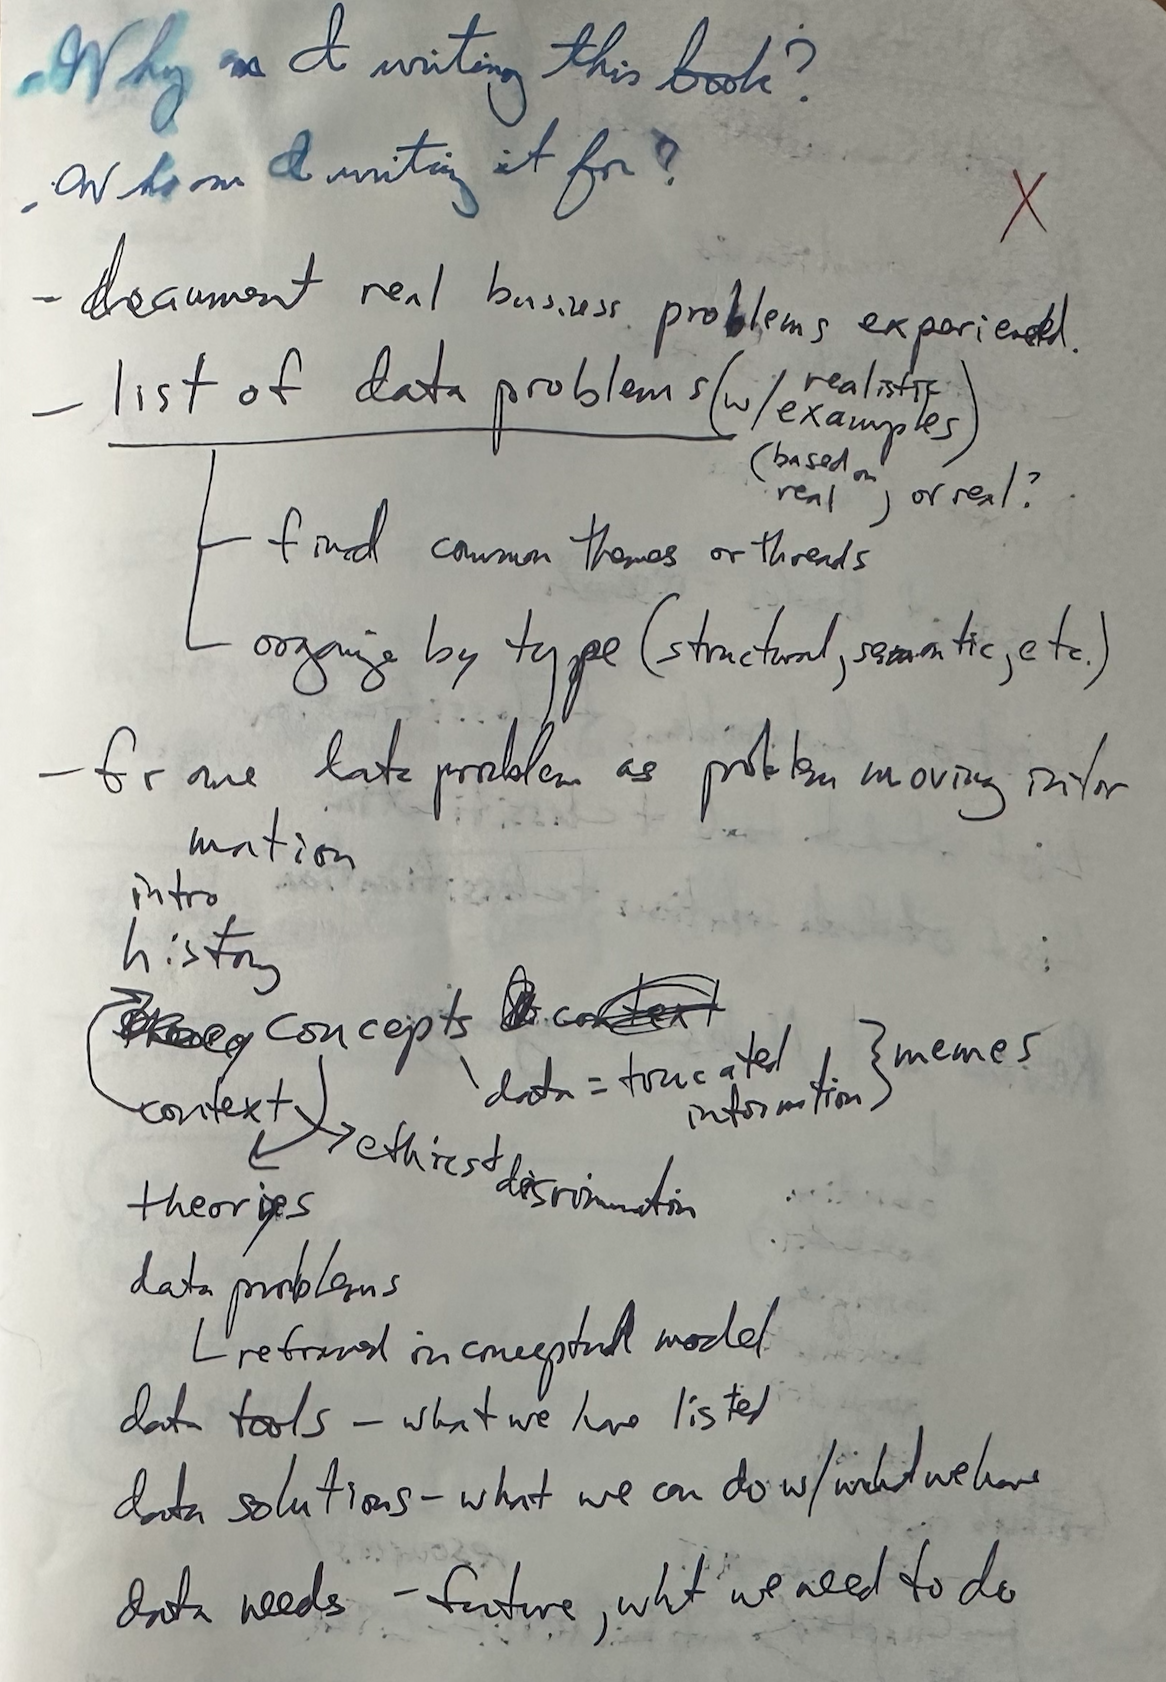 Why am I writing this book?
Whom I writing it for?
X
- document real business problems experienced.
- list of data problems (w/ realistic examples)
(based on real, or real?
find common themes or threads
organize by type (structural, semantic, etc.)
- frame data problem as problem moving infor
mation
intro
history
concepts context
data = truncated information } memes
context
ethics + discrimination
theories
data problems
reframed in conceptual model
data tools - what we have listed
data solutions - what we can do w/ what we have
data needs - future, what we need to do